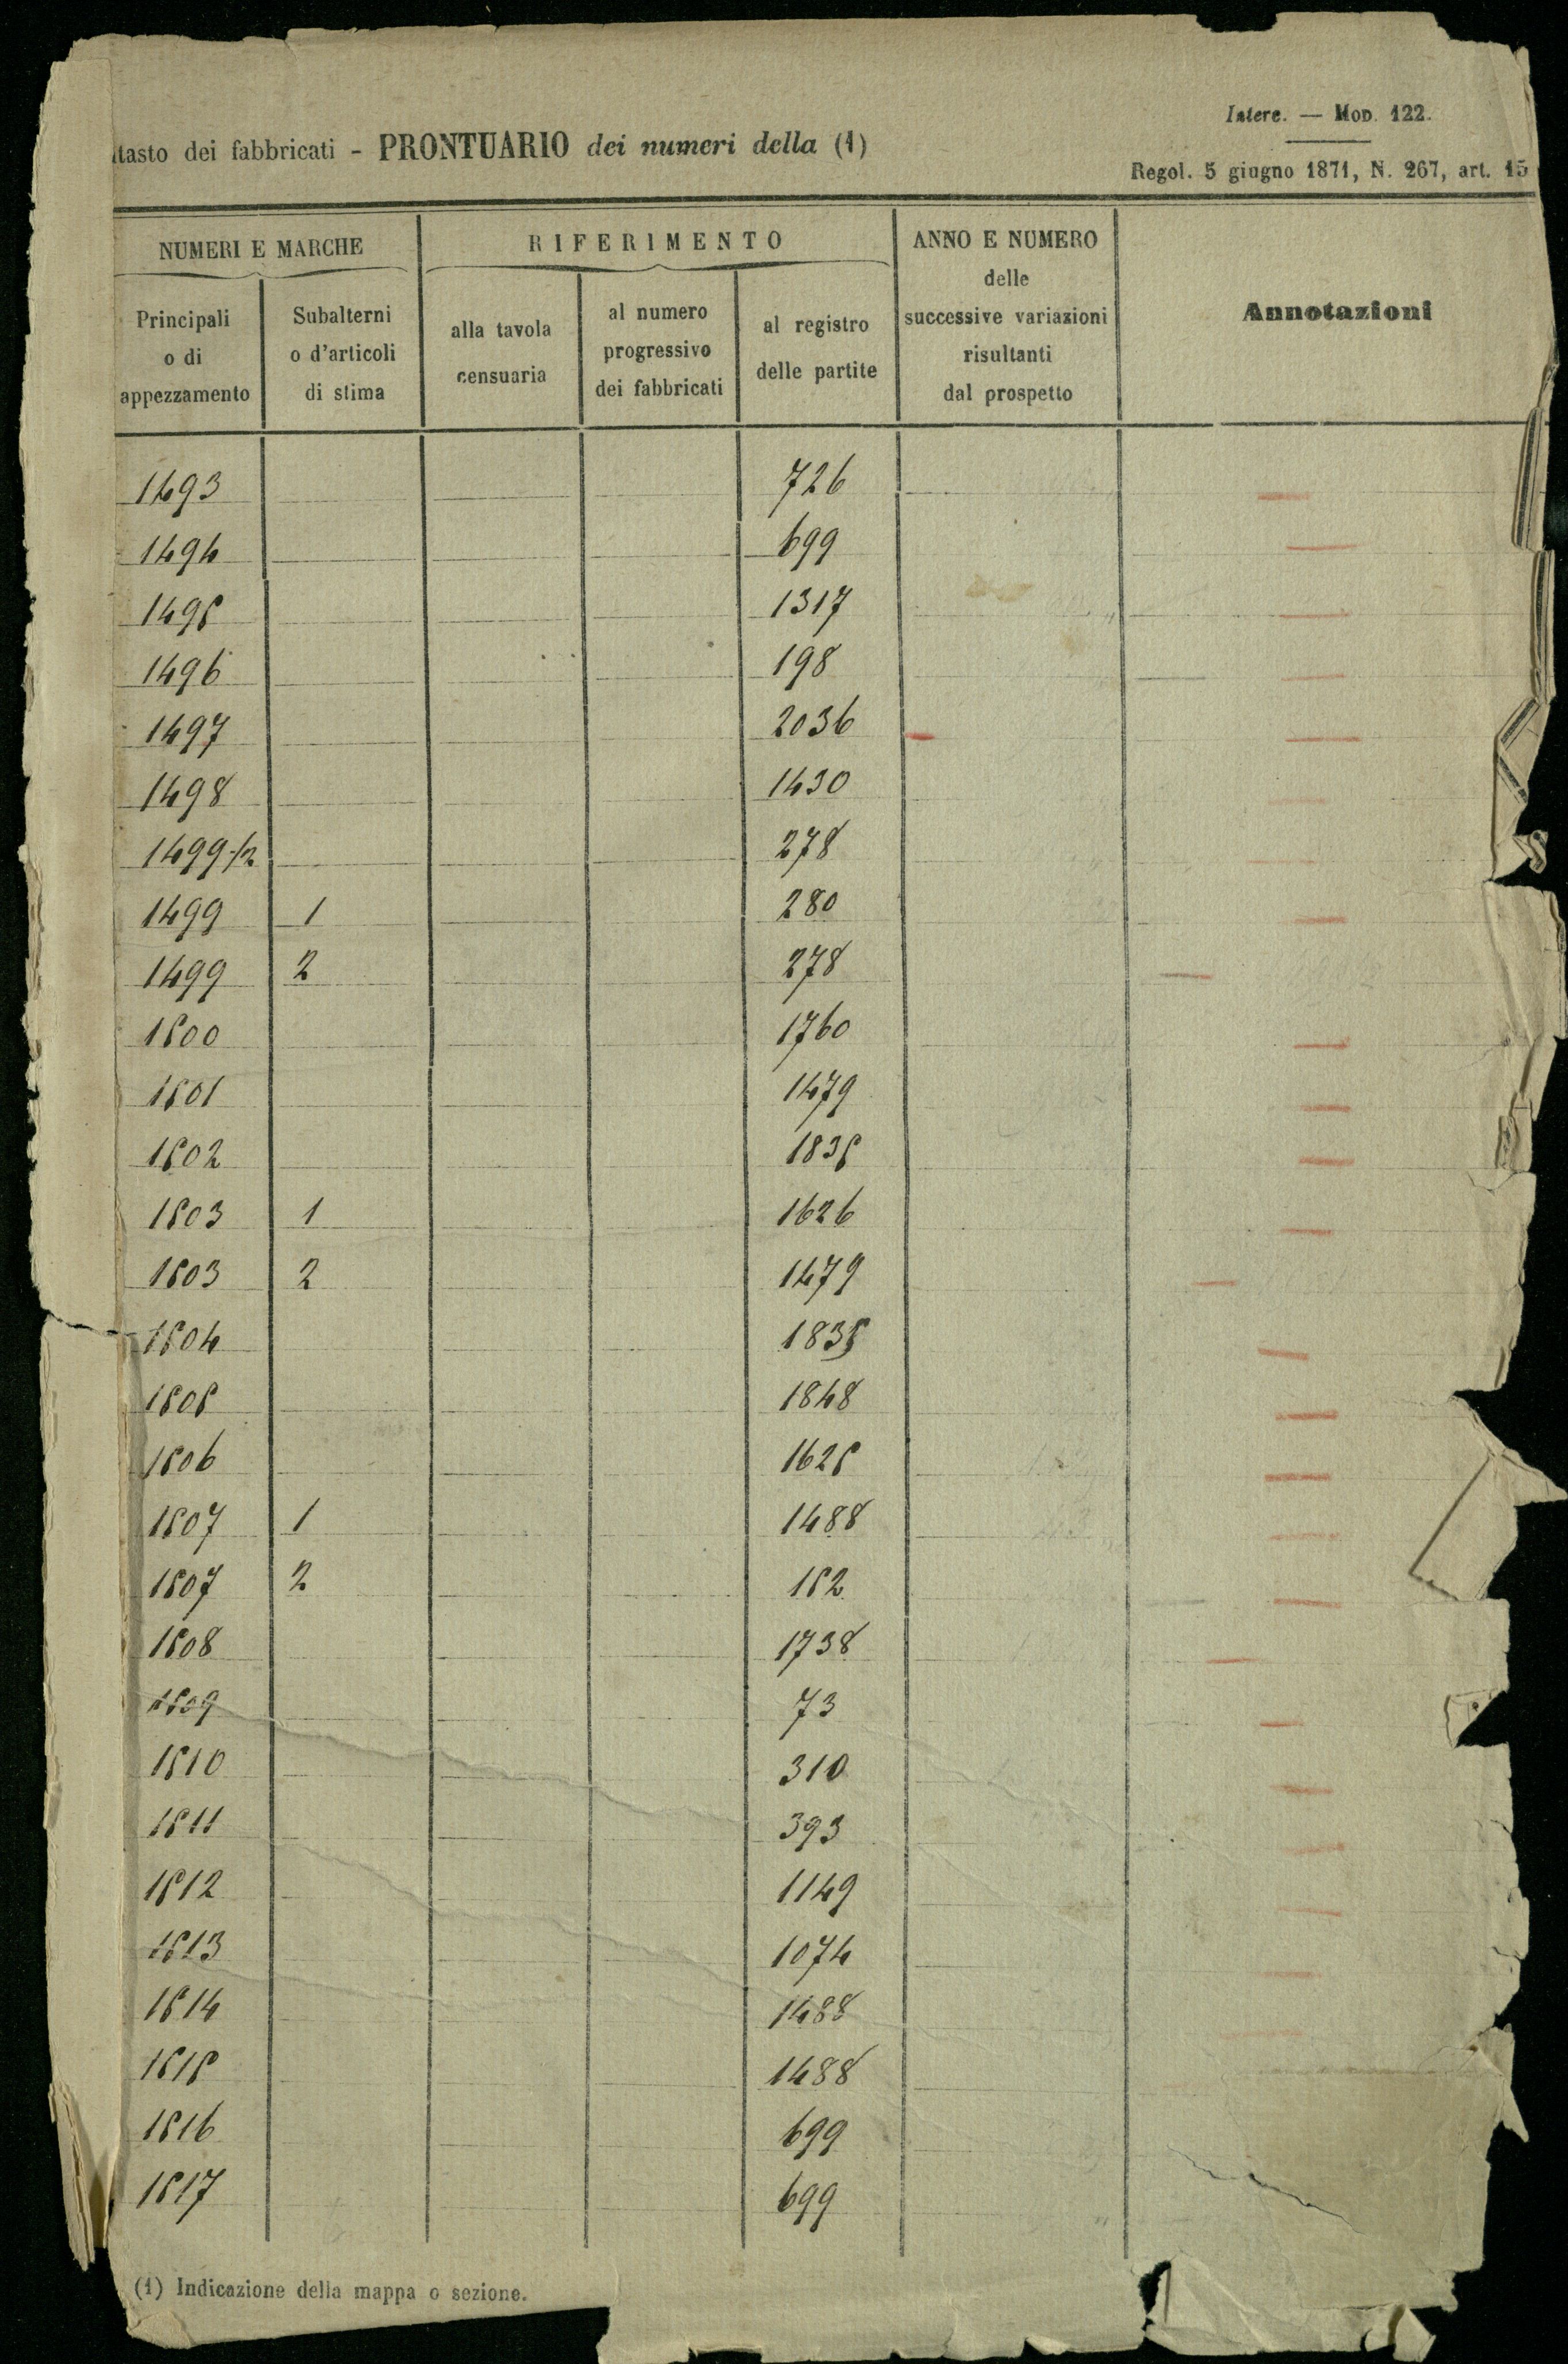 Intere. — Mod. 122.
tasto dei fabbricati - PRONTUARIO dei numeri della (1)
Regol. 5 giugno 1871, N. 267, art. 15
NUMERI E MARCHE
RIFERIMENTO
ANNO E NUMERO
delle
successive variazioni
risultanti
dal prospetto
Annotazioni
Principali
o di
appezzamento
Subalterni
o d'articoli
di stima
alla tavola
censuaria
al numero
progressivo
dei fabbricati
al registro
delle partite
1493 726
1494 699
1495 1317
1496 198
1497 2036
1498 1430
1499 1/2 278
1499 1 280
1499 2 278
1500 1760
1501 1479
1502 1835
1503 1 1626
1503 2 1479
1504 1835
1505 1848
1506 1625
1507 1 1488
1507 2 152
1508 1738
1509 73
1510 310
1511 393
1512 1149
1513 1074
1514 1488
1515 1488
1516 699
1517 699
(1) Indicazione della mappa o sezione.